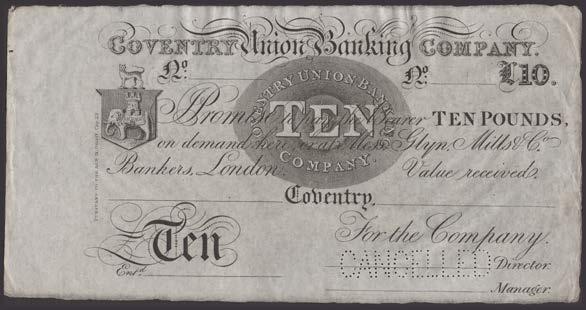 COVENTRY Union Banking COMPANY.
No. No. £10.
COVENTRY UNION BANKING
TEN
COMPANY.
I Promise to pay the Bearer TEN POUNDS,
on demand here, or at Messrs Glyn, Mills & Co.
Bankers, London. Value received.
Coventry,
PURSUANT TO THE ACT
£Ten For the Company.
CANCELLED
Entd. Director.
Manager.